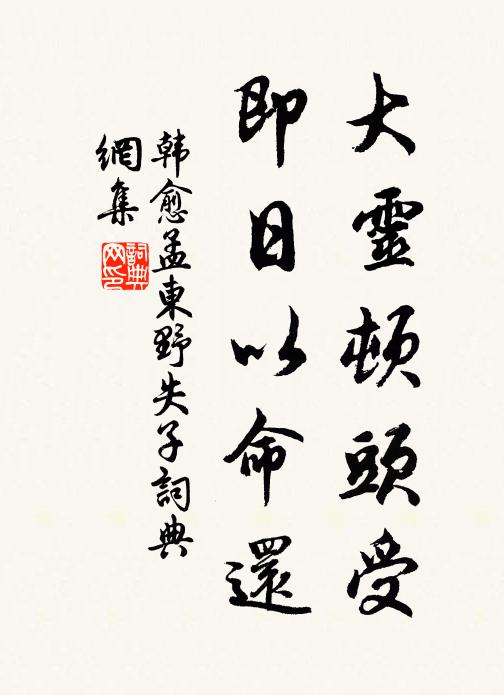 大靈頓頭受
即日以命還
韓愈孟東野失子詞典
網集
詞典
网印